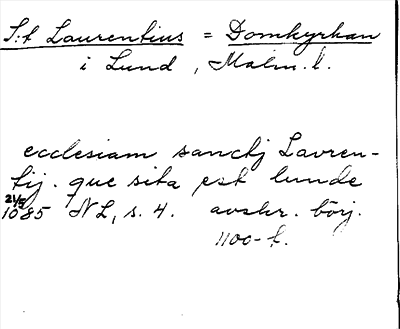 S:t Laurentius = Domkyrkan
i Lund, Malm. l.
ecclesiam sanctj Lavren-
tij. que sita est lunde
21/5
1085 NL, s. 4. avskr. börj.
1100-t.